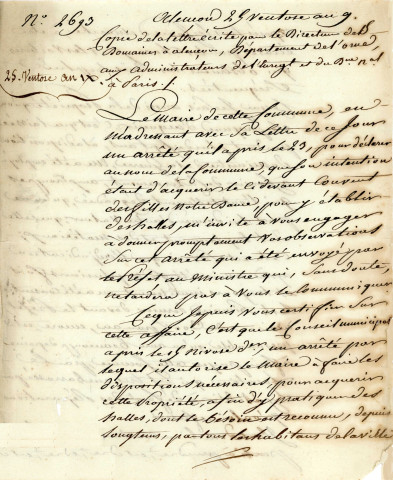 N.° 2693
Alencon 25 Ventose an 9.
Copie de la lettre écrite par le Directeur des
Domaines à alencon, Département de l'orne,
aux administrateurs de l'Enregt et du Dne nal
à Paris ./.
25. Ventose an IX
Le Maire de cette Commune, en
m'adressant avec sa Lettre de ce Jour
un arrêté qu'il a pris le 23, pour déclarer
au nom de la Commune, que son intention
était d'acquerir le ci devant Couvent
des filles Notre Dame pour y établir
des halles, m'invite à vous engager
à donner promptement vos observations
Sur cet arrêté qui a été envoyé par
le Préfet au Ministre qui, sans doute,
ne tardera pas à Vous le Communiquer
Ce que je puis vous certifier sur
cette affaire, C'est que le Conseil municipal
a pris le 15 Nivose der, un arrêté par
lequel il autorise le Maire à faire les
dispositions necessaires, pour acquerir
cette Propriété, afin d'y pratiquer des
halles, dont le besoin est reconnu, depuis
longtems, par tous les habitans de la ville